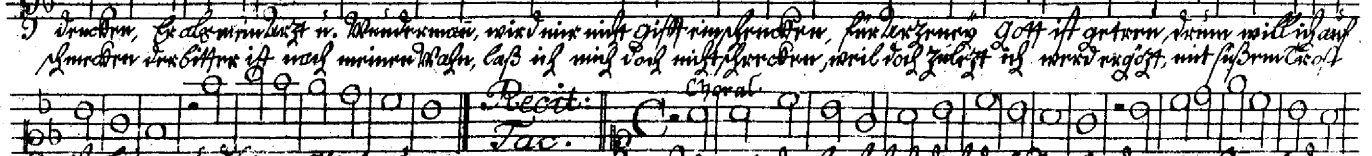 dencken, Er als mein Artzt u. Wunderman, wird mir nicht Gifft einschencken, für Artzeney Gott ist getreu, drum will ich auf
schmecken der bitter ist nach meinem Wahn, laß ich mich doch nicht schrecken, weil doch zuletzt ich werd ergötzt, mit süßem Trost
Choral
Recit:
Tac.